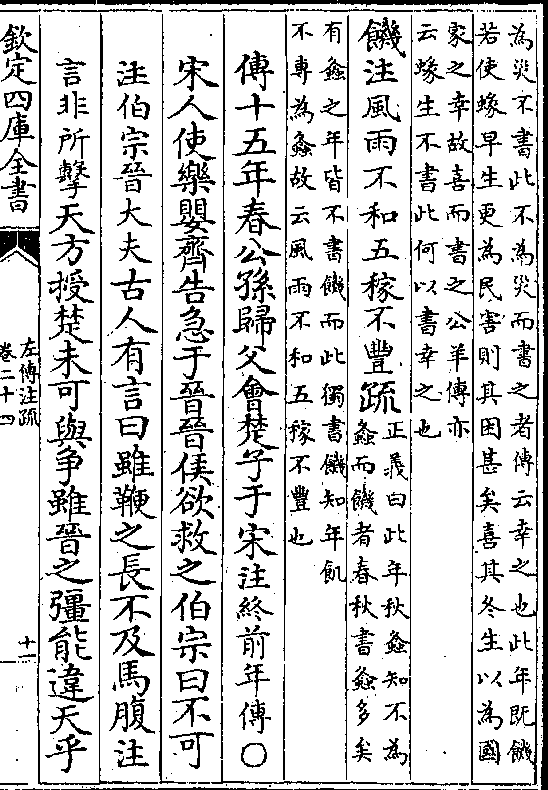 為災不書此不為災而書之者傳云幸之也此年既饑
若使蝝早生更為民害則其困甚矣喜其冬生以為國
家之幸故喜而書之公羊傳亦
云蝝生不書此何以書幸之也
饑注風雨不和五稼不豐疏
正義曰此年秋螽知不為
螽而饑者春秋書螽多矣
有螽之年皆不書饑而此獨書饑知年飢
不專為螽故云風雨不和五稼不豐也
傳十五年春公孫歸父會楚子于宋注終前年傳〇
宋人使樂嬰齊告急于晉晉侯欲救之伯宗曰不可
注伯宗晉大夫古人有言曰雖鞭之長不及馬腹注
言非所擊天方授楚未可與爭雖晉之彊能違天乎
欽定四庫全書
左傳注疏
卷二十四
十一